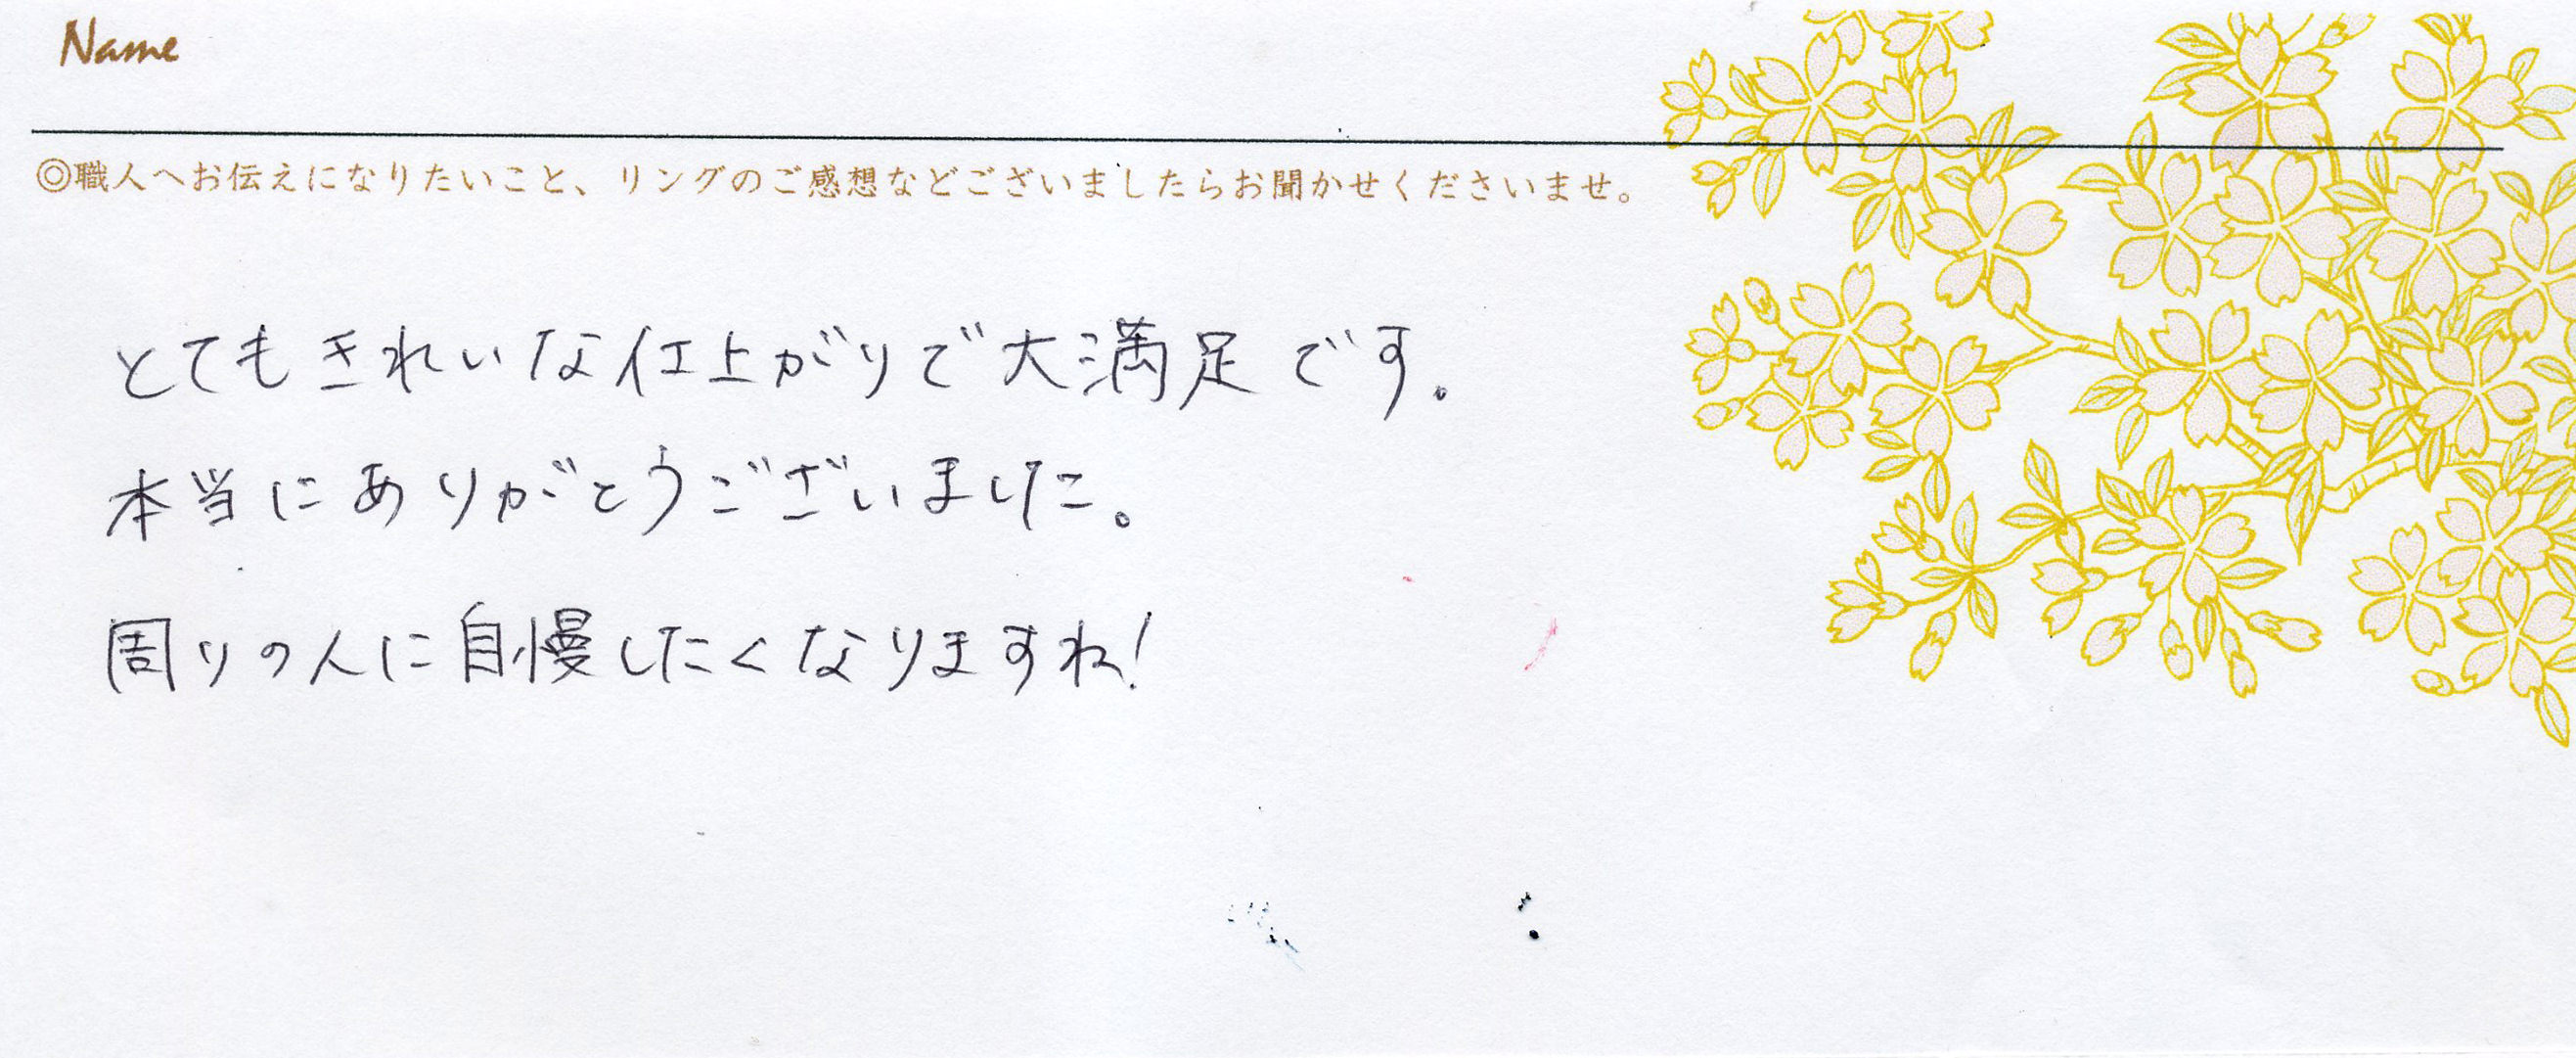 Name
◎職人へお伝えになりたいこと、リングのご感想などございましたらお聞かせくださいませ。
とてもきれいな仕上がりで大満足です。
本当にありがとうございました。
周りの人に自慢したくなりますね!